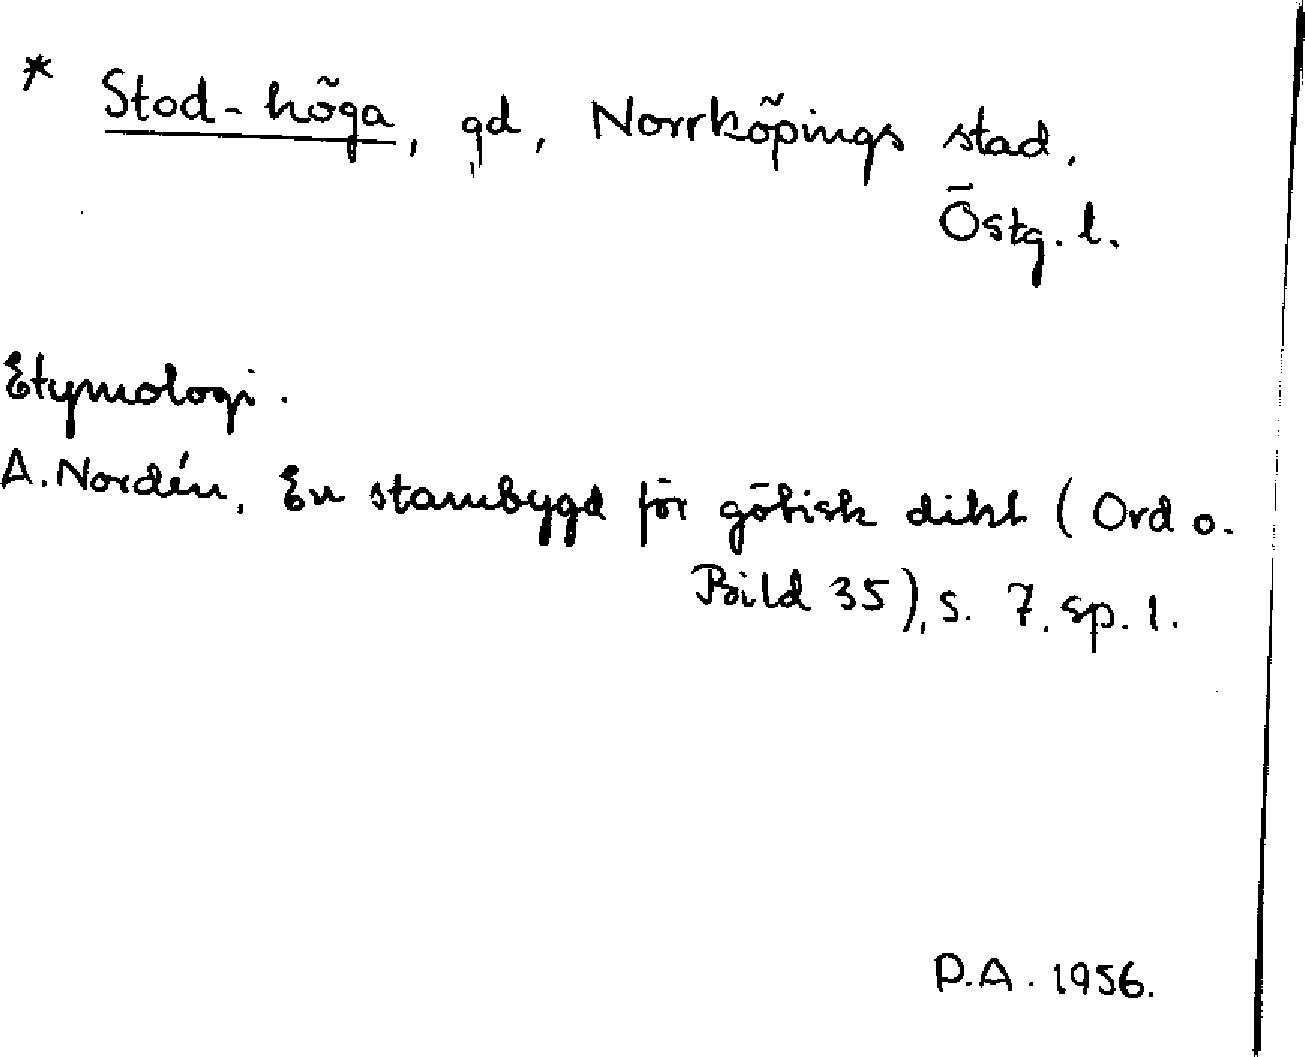 * Stod-höga, gd, Norrköpings stad,
Östg. l.
Etymologi.
A. Nordén, En stambygd för götisk dikt (Ord o.
Bild 35), s. 7, sp. 1.
P.A. 1956.